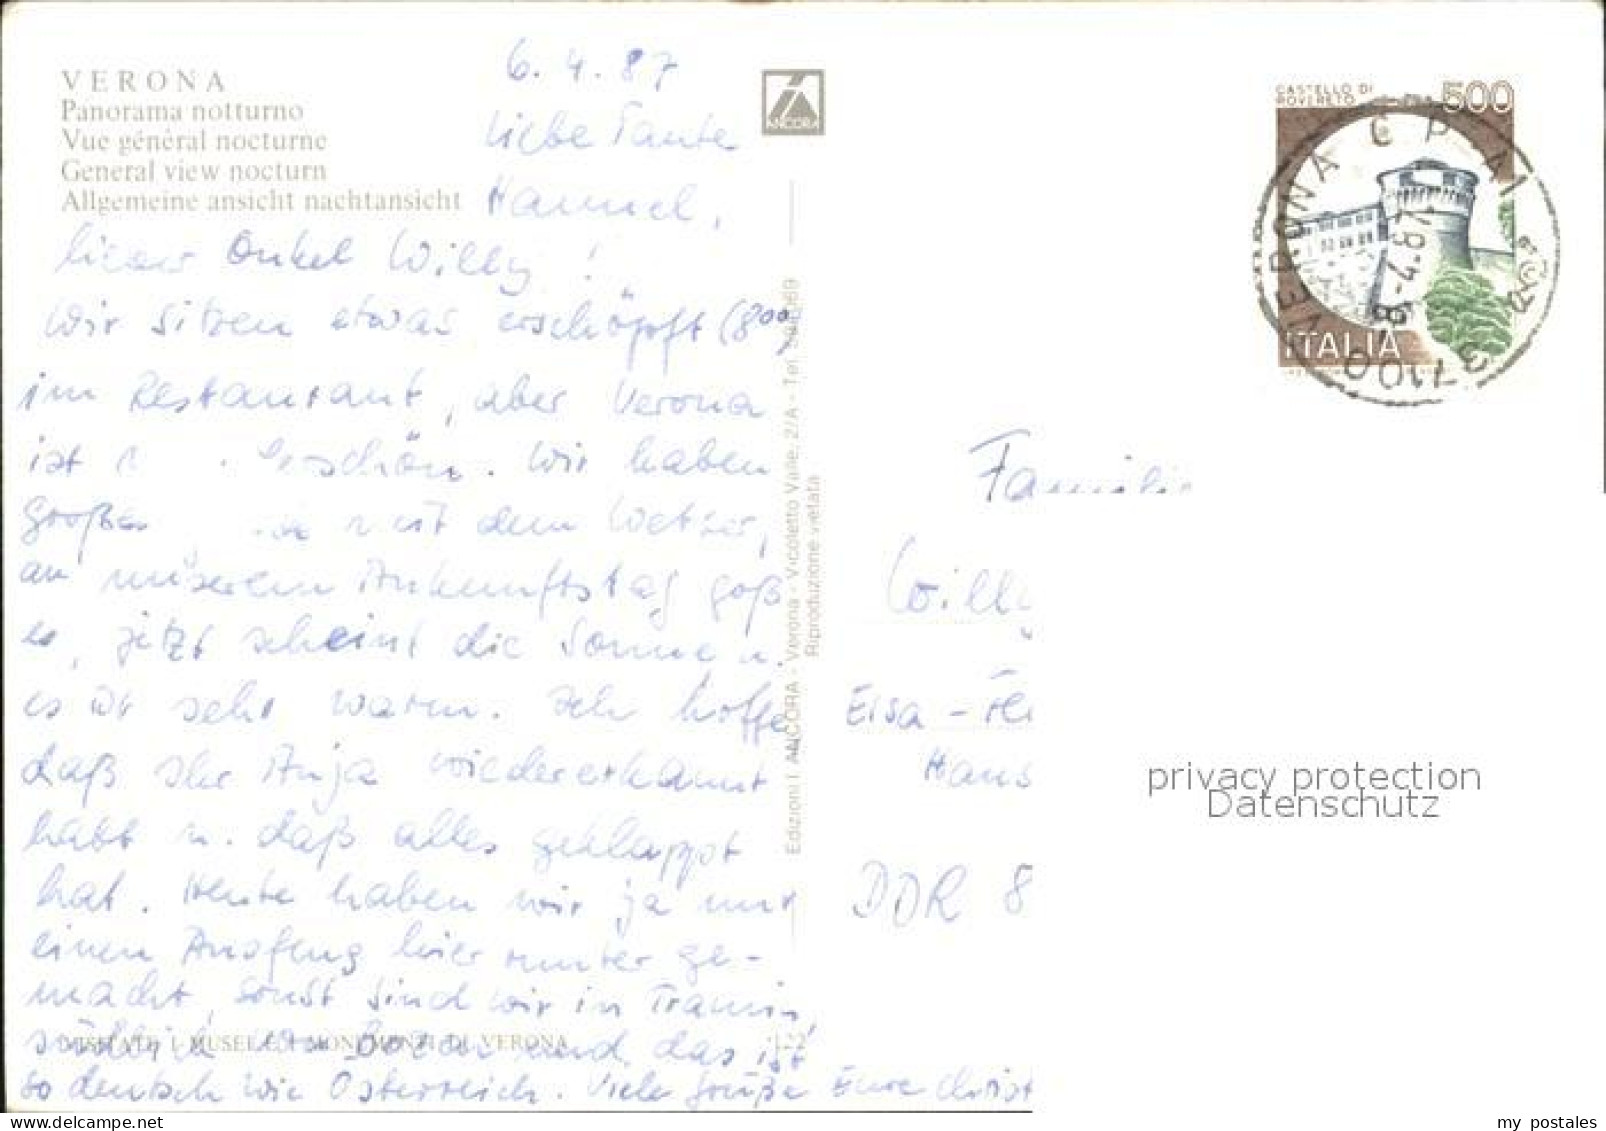 VERONA
Panorama notturno
Vue général nocturne
General view nocturn
Allgemeine ansicht nachtansicht
6.4.87
Liebe Tante
Hannel,
lieber Onkel Willy!
Wir sitzen etwas erschöpft (8⁰⁰)
im Restaurant, aber Verona
ist schön. Wir haben
großes mit dem Wetter,
an unserem Ankunftstag goß
es, jetzt scheint die Sonne u.
es ist sehr warm. Ich hoffe
daß Ihr Anja wiedererkannt
habt u. daß alles geklappt
hat. Heute haben wir ja nur
einen Ausflug hier runter ge-
macht, sonst sind wir in Tramin,
südlich von Bozen und das ist
so deutsch wie Österreich. Viele Grüße Eure Christ
VISITATE I MUSEI E I MONUMENTI DI VERONA
122
ANCORA
Edizioni ANCORA - Verona - Vicoletto Valle, 2/A - Tel.
Riproduzione vietata
CASTELLO DI
ROVERETO
500
ITALIA
VERONA C P
37100
Familie
Willy
Eisa
Haus
DDR 8
privacy protection
Datenschutz
my postales